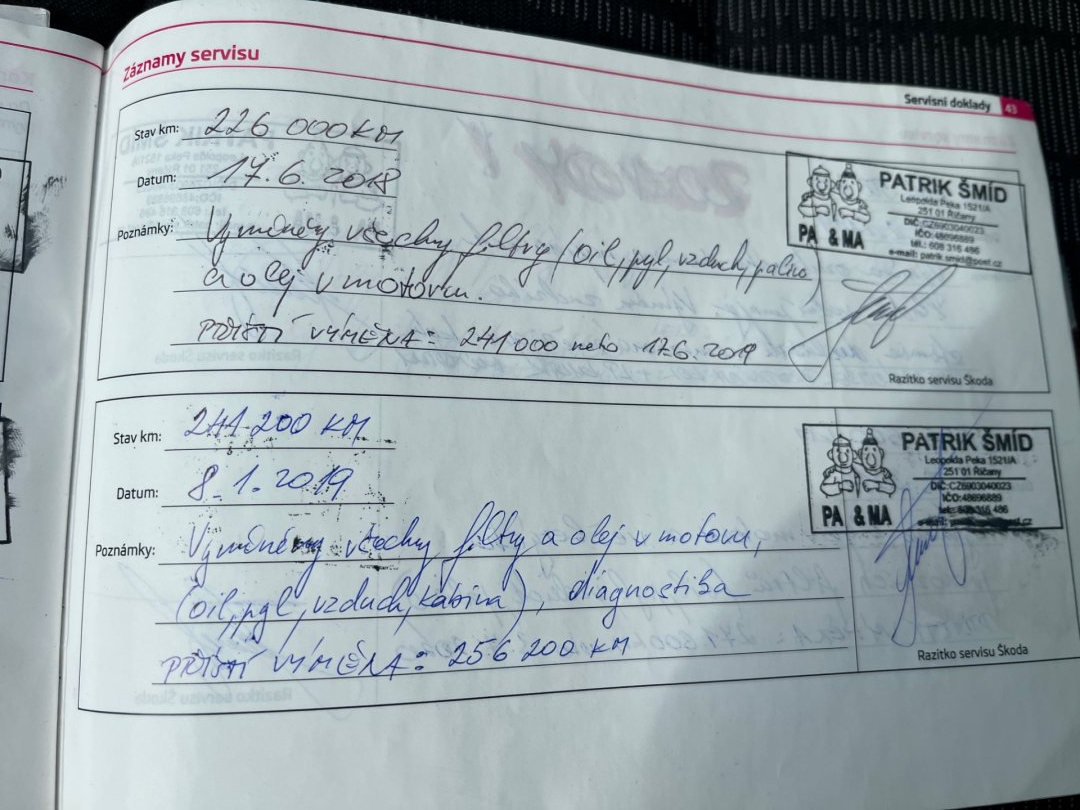 Záznamy servisu
Servisní doklady 43
Stav km: 226 000 KM
Datum: 17.6.2018
Poznámky: Vyměněny všechny filtry (oil, pyl, vzduch, palivo)
a olej v motoru.
PŘÍŠTÍ VÝMĚNA: 241 000 nebo 17.6.2019
PATRIK ŠMÍD
Leopolda Peka 1521/A
251 01 Říčany
DIČ:CZ6903040023
IČO:48696889
tel.: 608 316 486
e-mail: patrik.smid@post.cz
PA & MA
Razítko servisu Škoda
Stav km: 241 200 KM
Datum: 8.1.2019
Poznámky: Vyměněny všechny filtry a olej v motoru,
(oil, pyl, vzduch, kabina), diagnostika
PŘÍŠTÍ VÝMĚNA: 256 200 KM
PATRIK ŠMÍD
Leopolda Peka 1521/A
251 01 Říčany
DIČ:CZ6903040023
IČO:48696889
tel.: 608 316 486
PA & MA
Razítko servisu Škoda